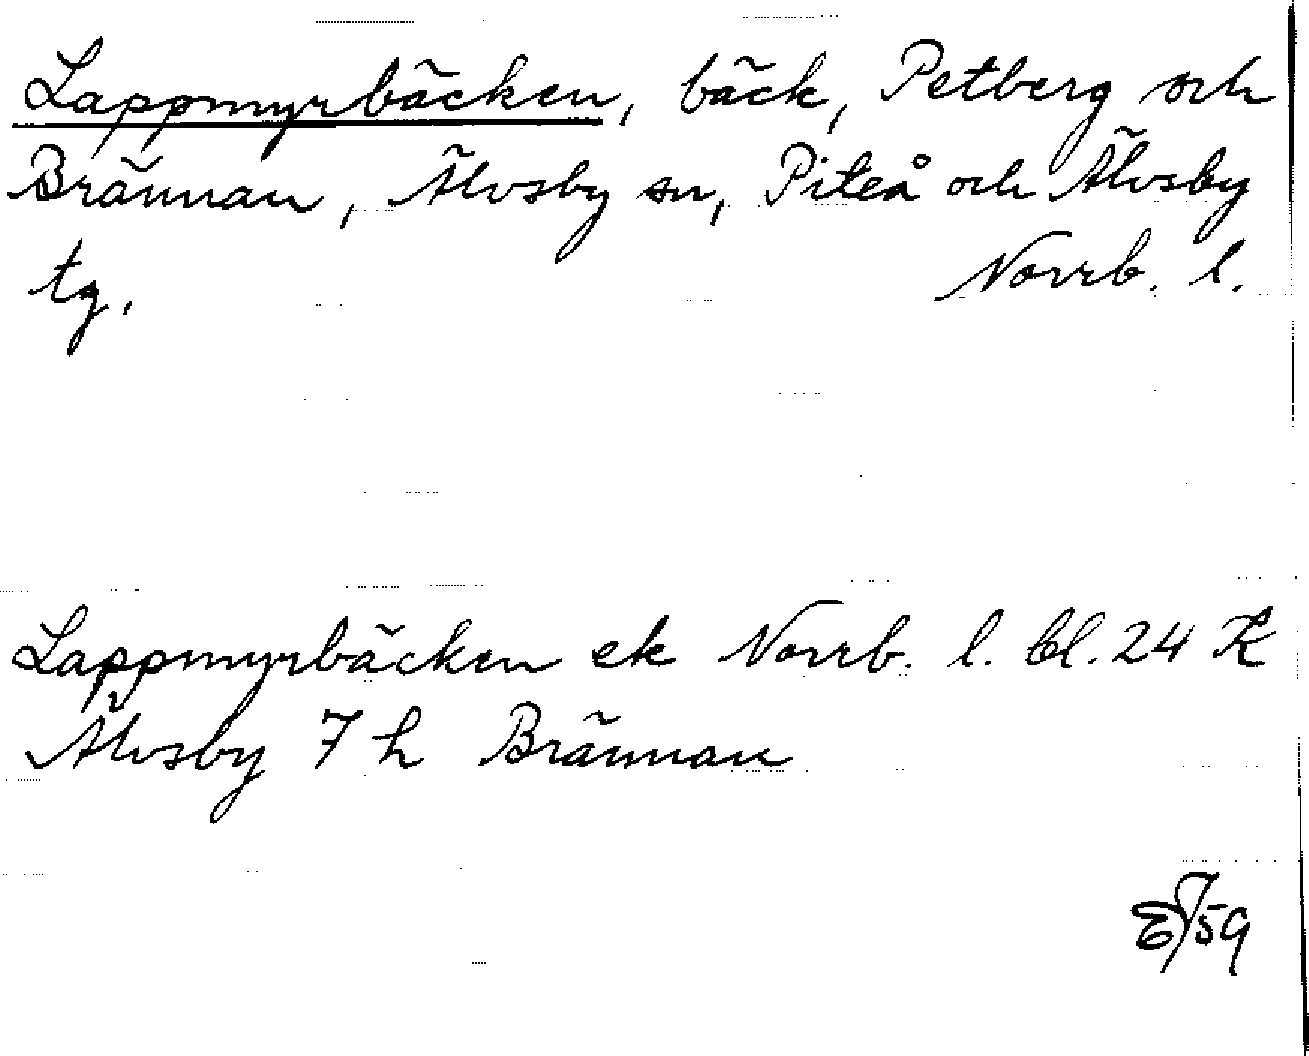 Lappmyrbäcken, bäck, Petberg och
Brännan, Älvsby sn, Piteå och Älvsby
tg. Norrb. l.
Lappmyrbäcken ek Norrb. l. bl. 24 K
Älvsby 7 h Brännan
/59